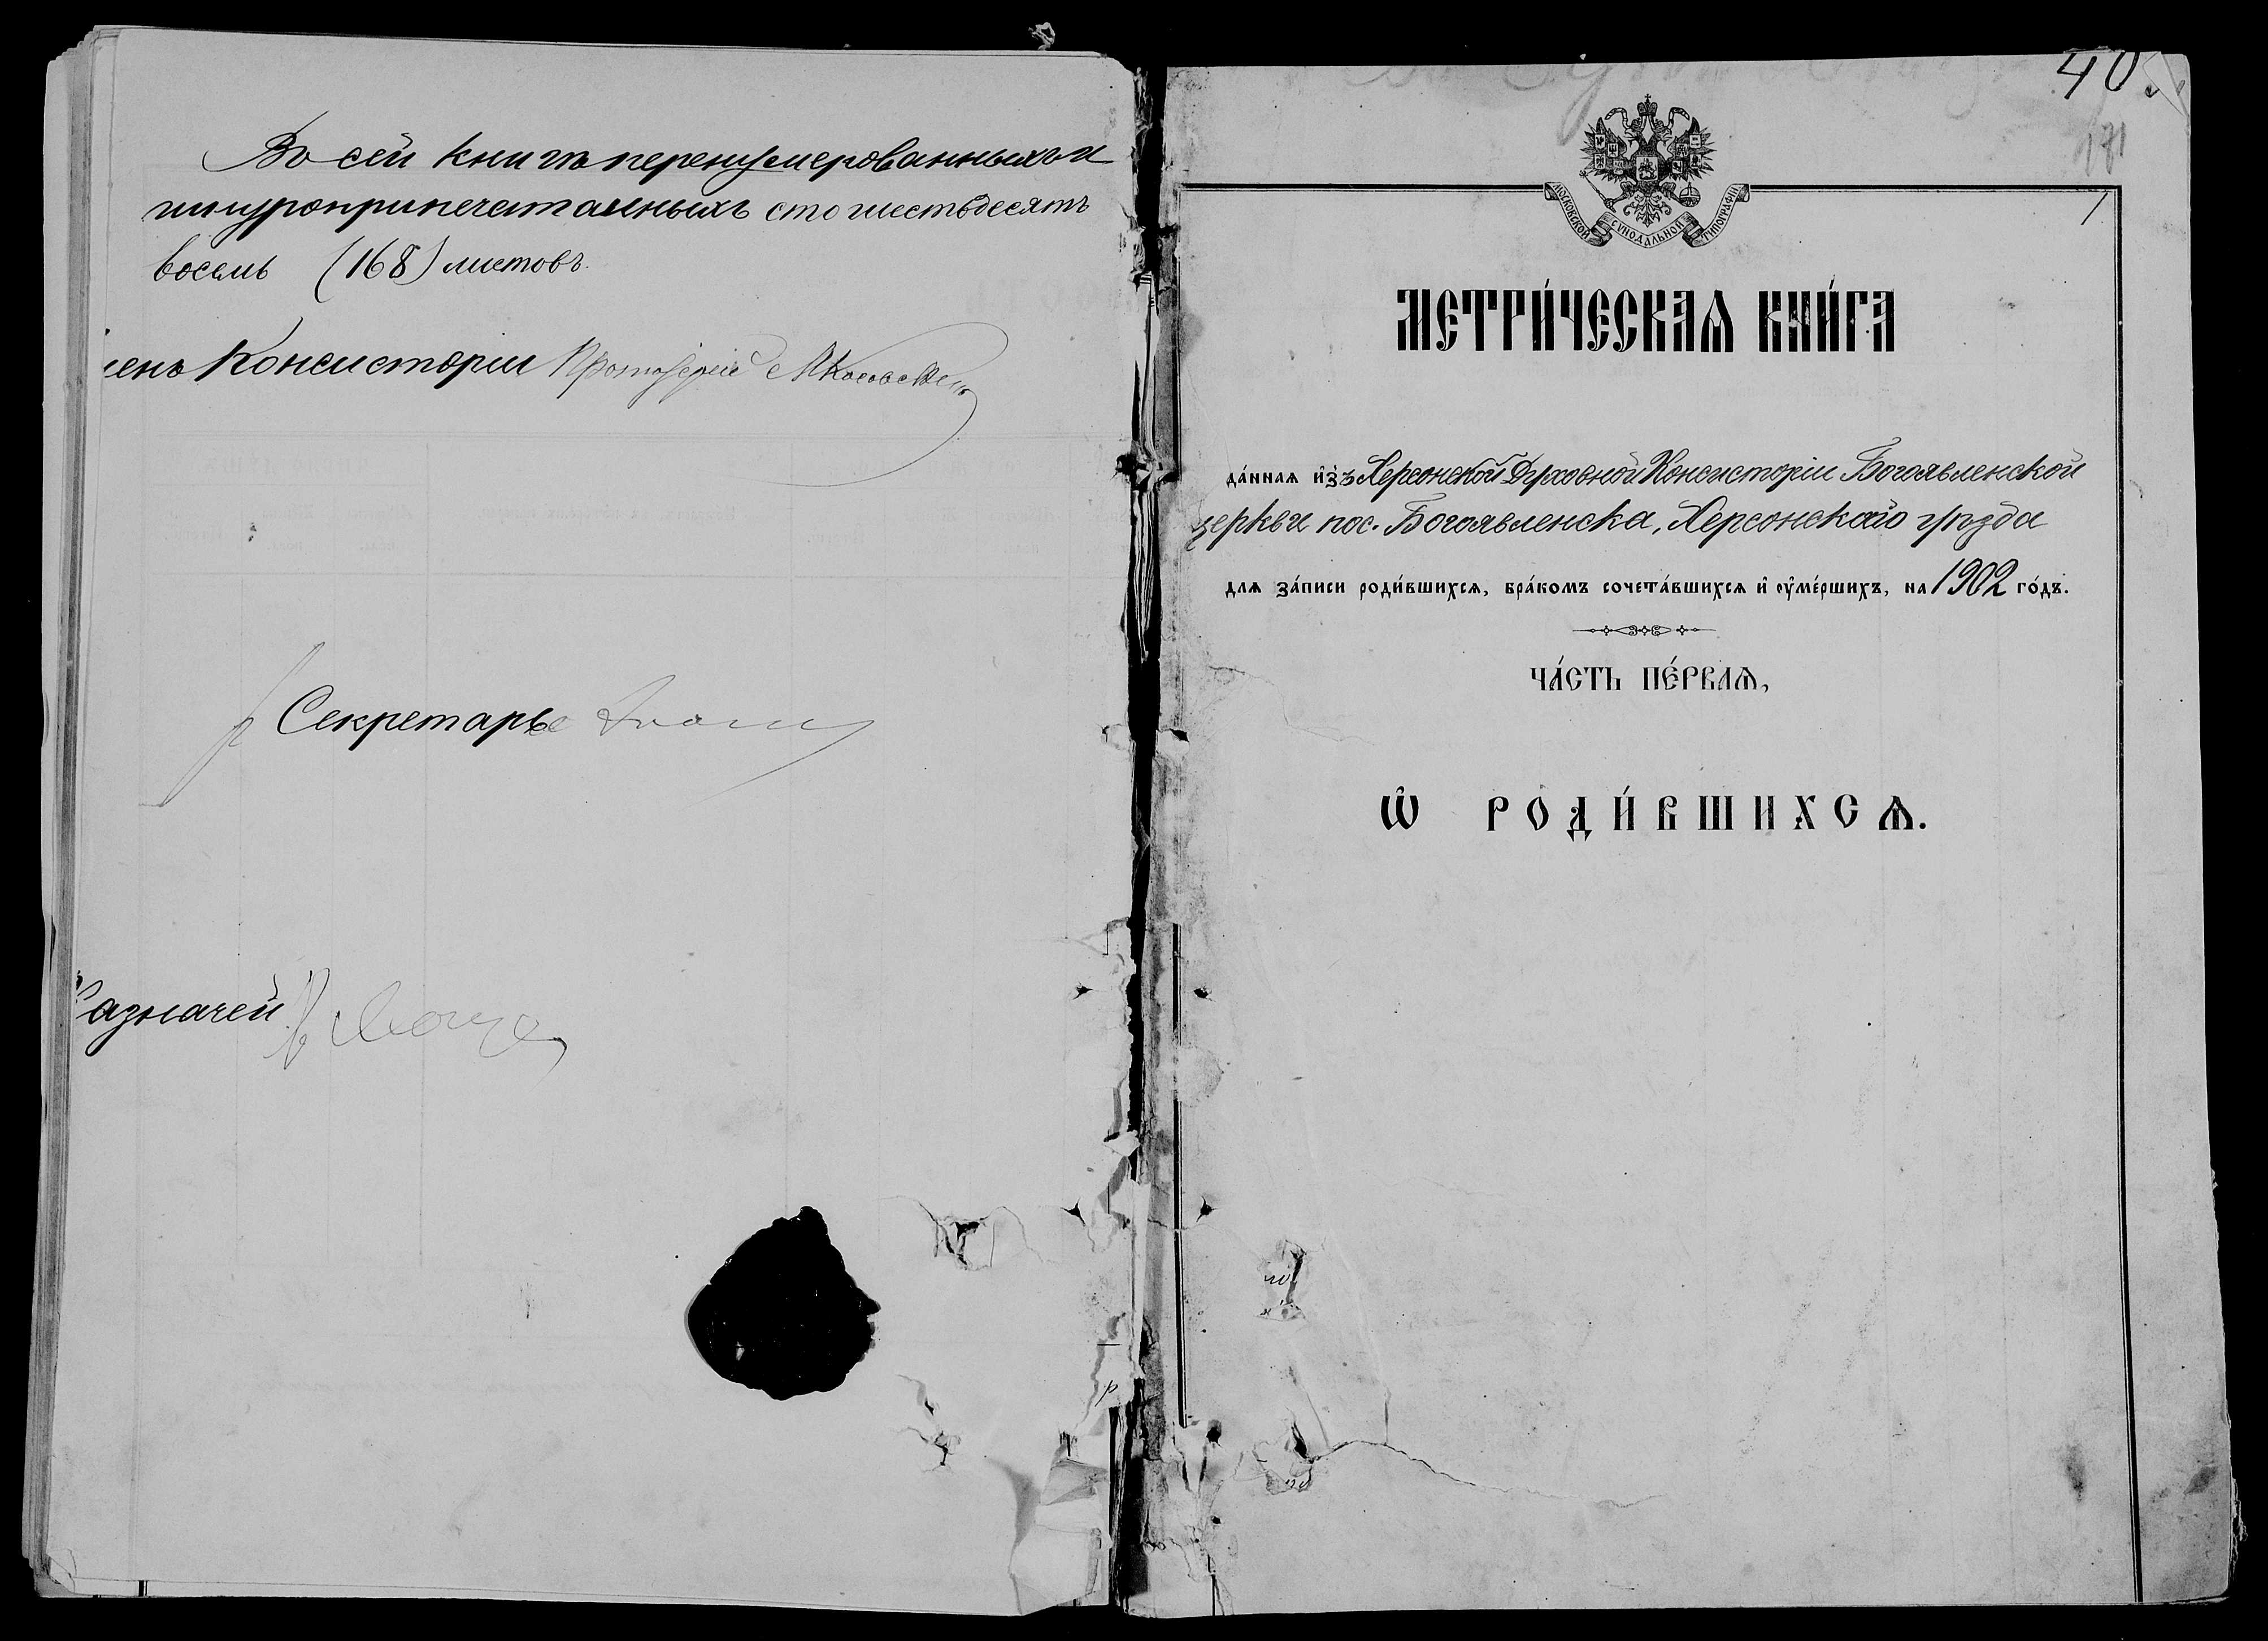 Во сей книгѣ перенумерованныхъ и
шнуроприпечатанныхъ сто шестьдесятъ
восемь (168) листовъ.
ленъ Консисторіи Протоіерей
Секретарь
Казначей
40
171
1
МОСКОВСКОЙ СѴНОДАЛЬНОЙ ТИПОГРАФІИ
МЕТРИ́ЧЕСКАѦ КНИ́ГА
да́ннаѧ и҆зъ Херсонской Духовной Консисторіи Богоявленской
церкви пос. Богоявленска, Херсонскаго уѣзда
длѧ за́писи роди́вшихсѧ, бра́комъ сочета́вшихсѧ и҆ ᲂу҆ме́ршихъ, на 1902 го́дъ.
ЧА́СТЬ ПЕ́РВАѦ,
Ѡ҆ РОДИ́ВШИХСѦ.